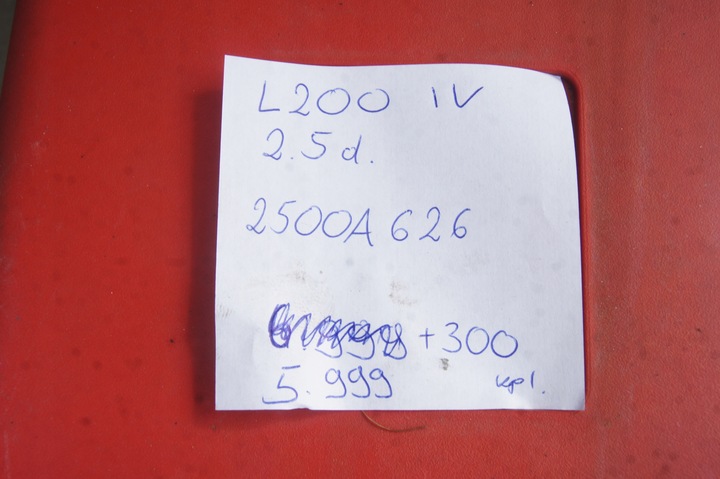 L200 IV
2.5 d.
2500A 626
+300
5.999 kpl.